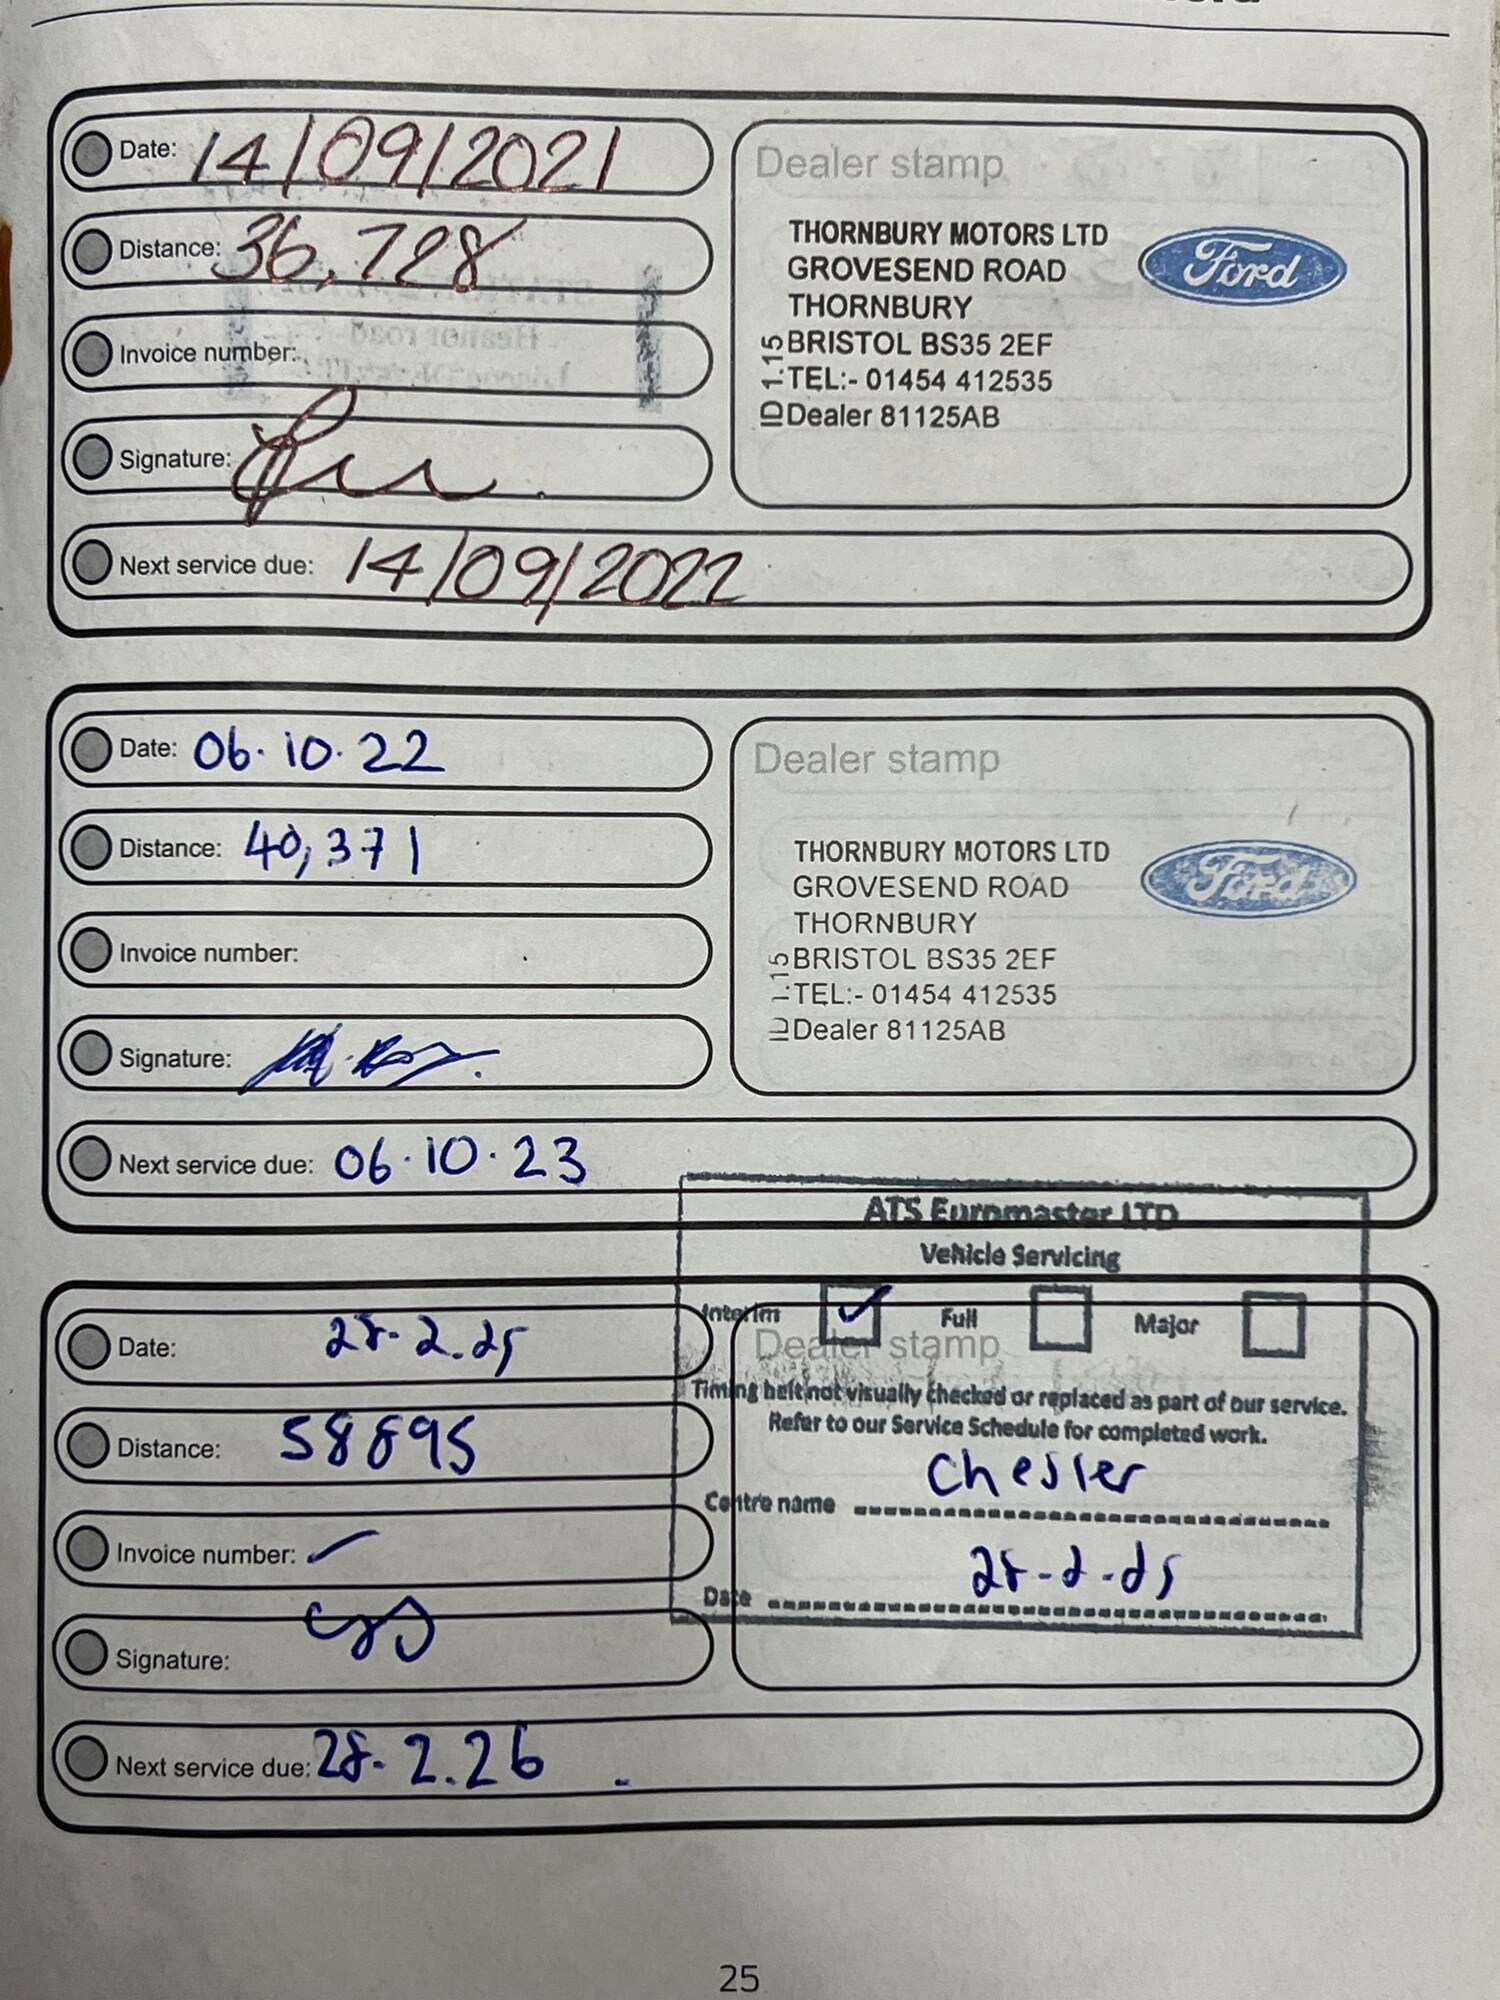 Date: 14/09/2021
Distance: 36,728
Invoice number:
Signature:
Next service due: 14/09/2022
Dealer stamp
THORNBURY MOTORS LTD
GROVESEND ROAD
THORNBURY
BRISTOL BS35 2EF
TEL:- 01454 412535
Dealer 81125AB
ID 1.15
Ford
Date: 06.10.22
Distance: 40,371
Invoice number:
Signature:
Next service due: 06.10.23
Dealer stamp
THORNBURY MOTORS LTD
GROVESEND ROAD
THORNBURY
BRISTOL BS35 2EF
TEL:- 01454 412535
Dealer 81125AB
ID 1.15
Ford
Date: 28.2.25
Distance: 58895
Invoice number:
Signature:
Next service due: 28.2.26
ATS Euromaster LTD
Vehicle Servicing
Interim Full Major
Dealer stamp
Timing belt not visually checked or replaced as part of our service.
Refer to our Service Schedule for completed work.
Centre name Chester
Date 28-2-25
25